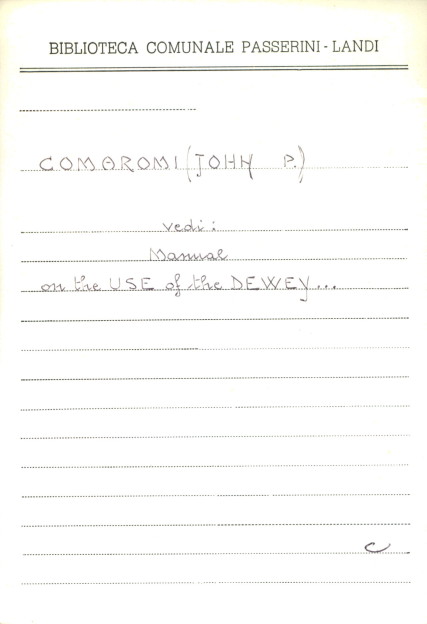 BIBLIOTECA COMUNALE PASSERINI - LANDI
COMAROMI (JOHN P.)
vedi:
Manual
on the USE of the DEWEY...
C